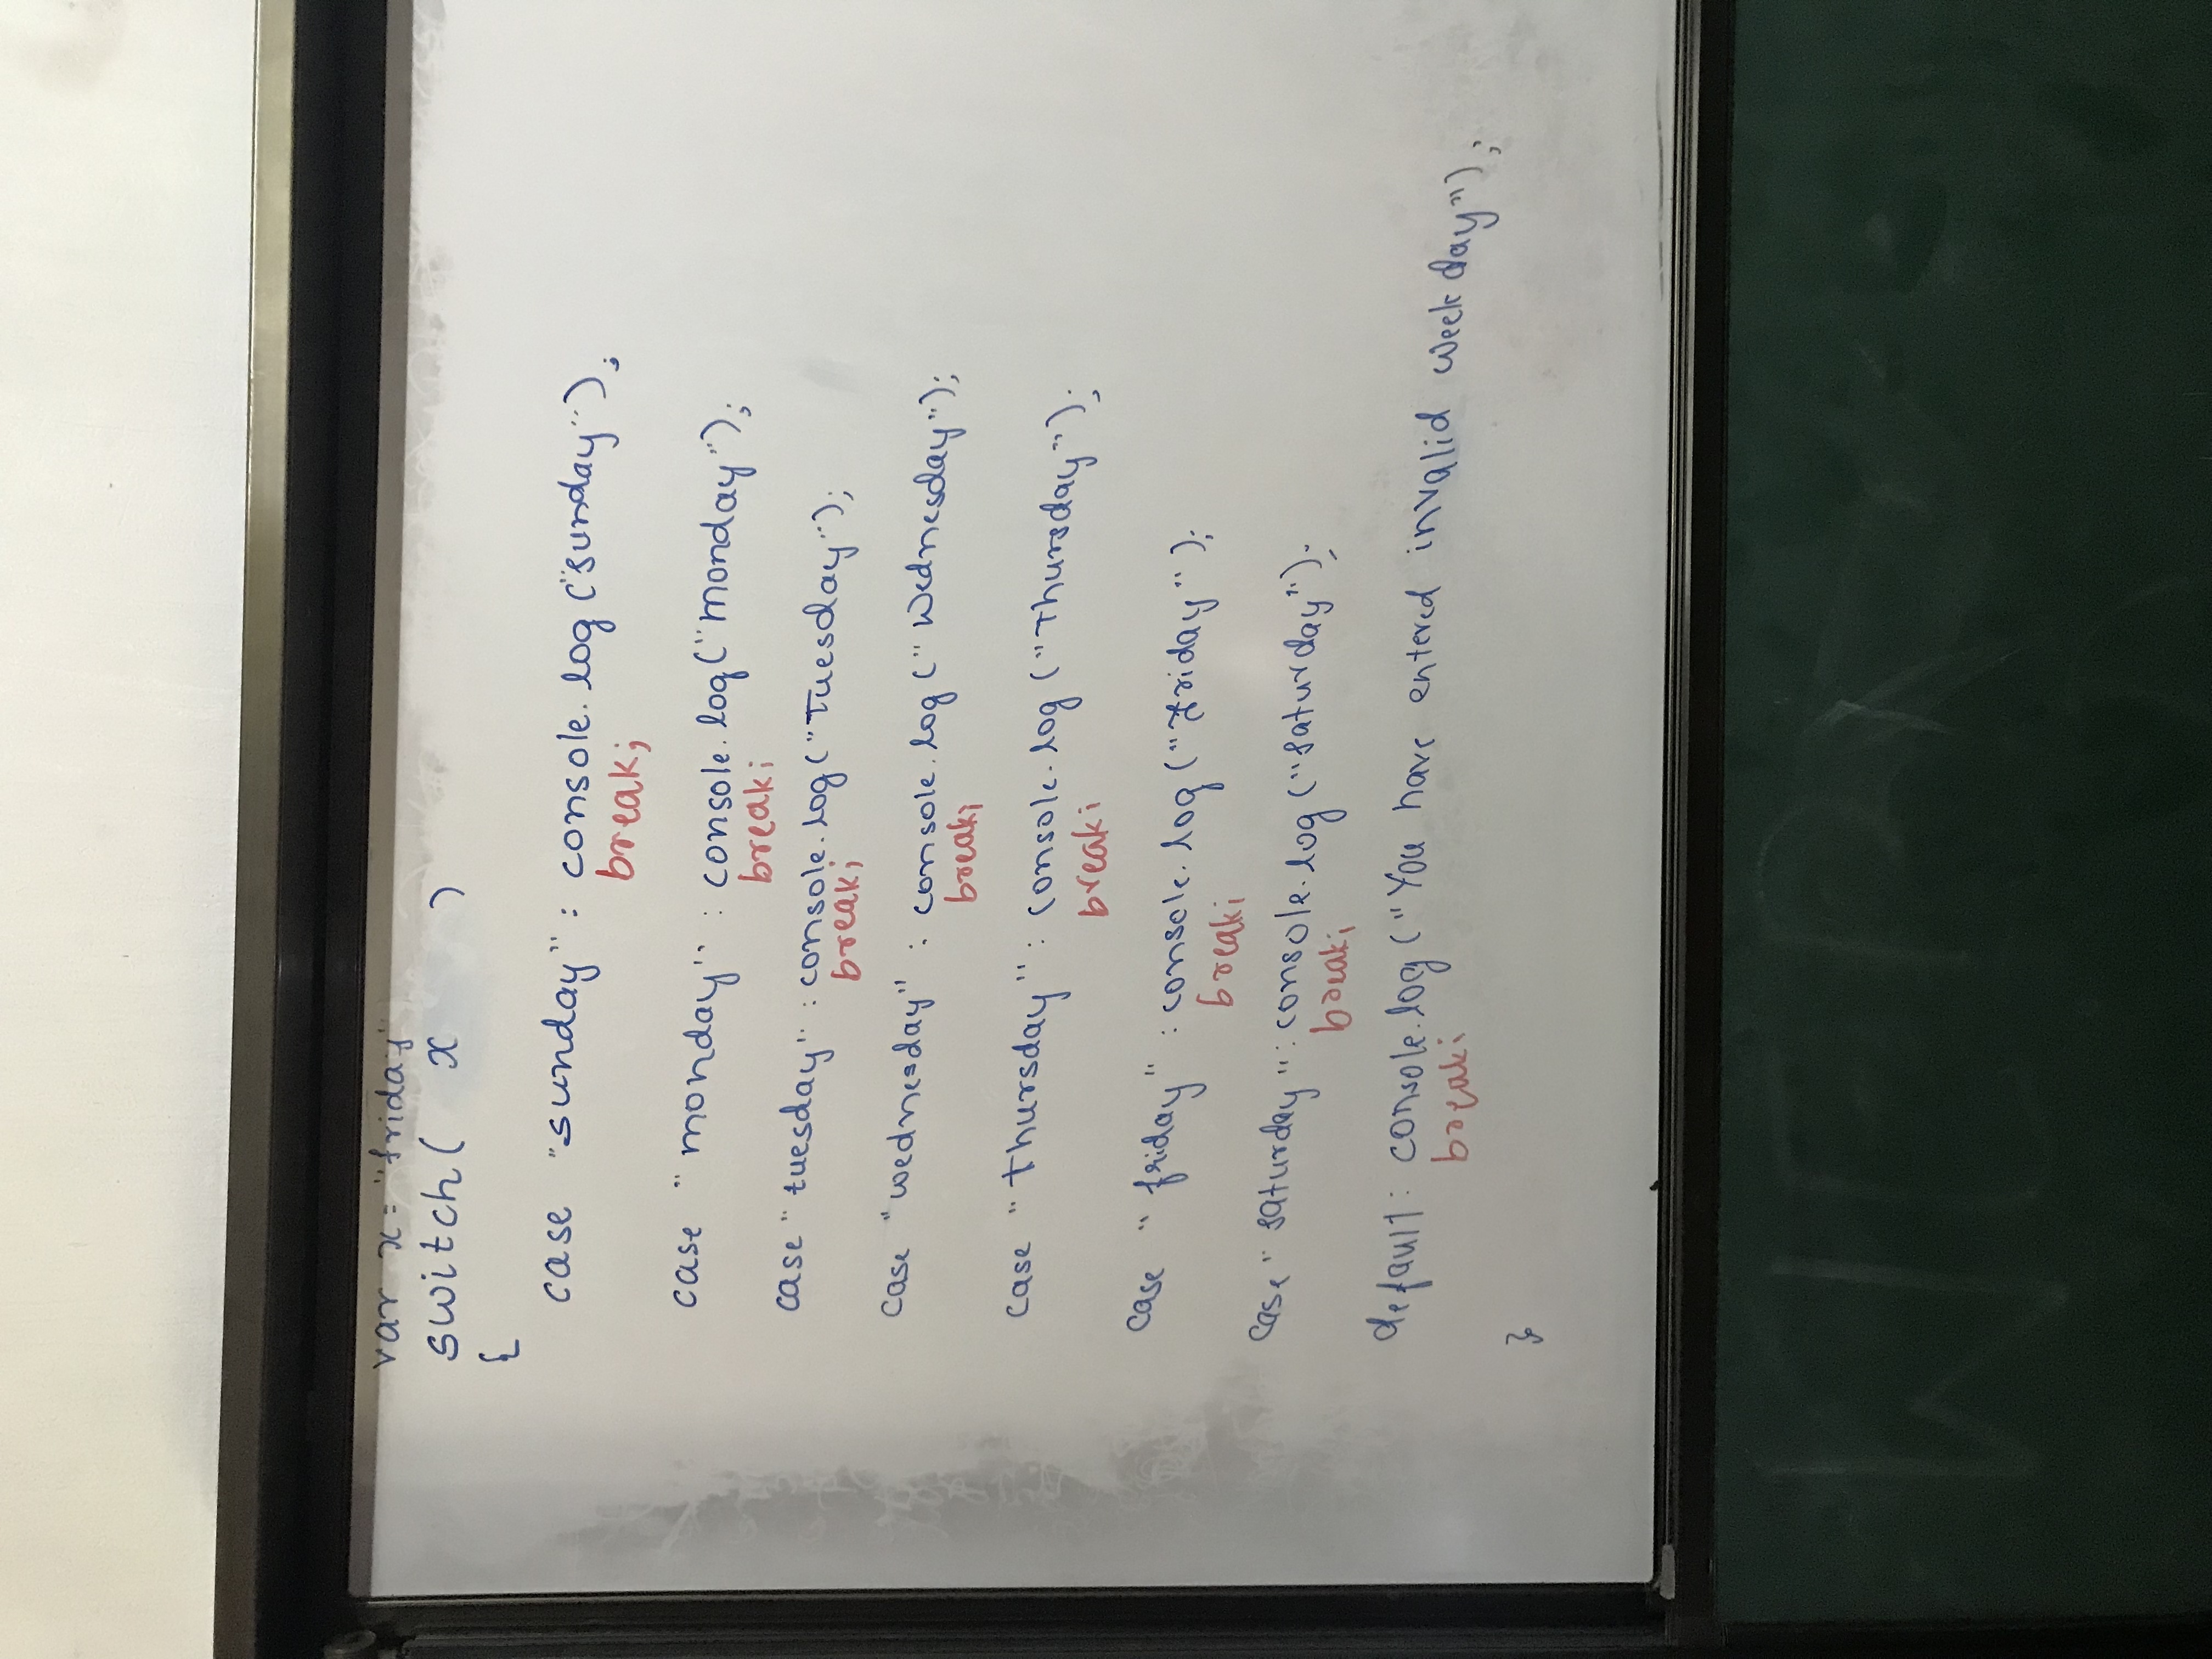 var x = "friday"
switch( x )
{
case "sunday" : console.log ("sunday");
break;
case "monday" : console.log("monday");
break;
case "tuesday" : console.log("Tuesday");
break;
case "wednesday" : console.log ("Wednesday");
break;
case "thursday" : console.log ("Thursday");
break;
case "friday" : console.log ("friday");
break;
case "saturday" : console.log ("saturday");
break;
default: console.log ("You have entered invalid week day");
break;
}